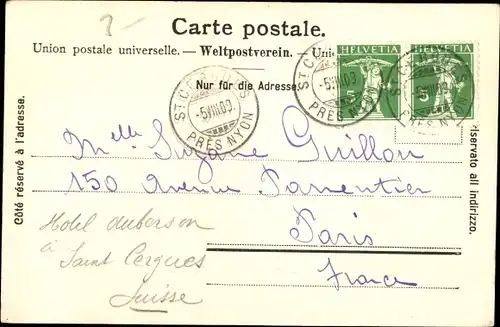 2-
Carte postale.
Union postale universelle. — Weltpostverein. — Uni
Nur für die Adresse.
HELVETIA
HELVETIA
5
ST. CERGUES
-5.VIII.09
PRÈS NYON
ST. CERGUES
-5.VIII.09
PRÈS NYON
ST. CERGUES
-5.VIII.09
PRÈS NYON
Côté réservé à l'adresse.
riservato all indirizzo.
Melle Suzanne Guillon
150 Avenue Parmentier
Paris
France
Hotel Auberson
à Saint Cergues
Suisse